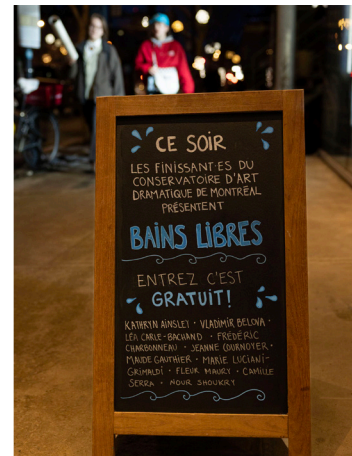 CE SOIR
LES FINISSANT·ES DU
CONSERVATOIRE D'ART
DRAMATIQUE DE MONTRÉAL
PRÉSENTENT
BAINS LIBRES
ENTREZ C'EST
GRATUIT!
KATHRYN AINSLEY · VLADIMIR BELOVA ·
LÉA CARLE-BACHAND · FRÉDÉRIC
CHARBONNEAU · JEANNE COURNOYER ·
MAUDE GAUTHIER · MARIE LUCIANI-
GRIMALDI · FLEUR MAURY · CAMILLE
SERRA · NOUR SHOUKRY